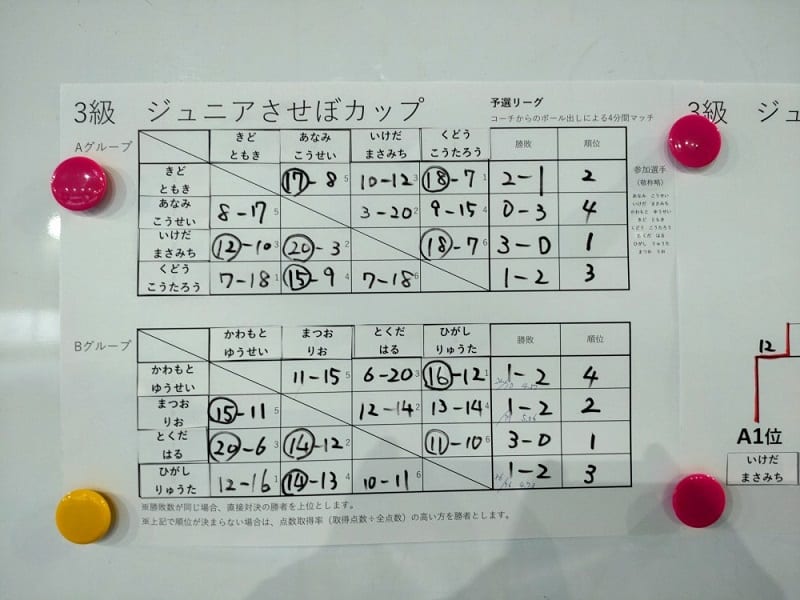 3級 ジュニアさせぼカップ
予選リーグ
コーチからのボール出しによる4分間マッチ
Aグループ
きど ともき
あなみ こうせい
いけだ まさみち
くどう こうたろう
勝敗
順位
きど ともき 17-8 5 10-12 3 18-7 1 2-1 2
あなみ こうせい 8-17 5 3-20 2 9-15 4 0-3 4
いけだ まさみち 12-10 3 20-3 2 18-7 6 3-0 1
くどう こうたろう 7-18 1 15-9 4 7-18 6 1-2 3
参加選手
(敬称略)
あなみ こうせい
いけだ まさみち
かわもと ゆうせい
きど ともき
くどう こうたろう
とくだ はる
ひがし りゅうた
まつお りお
Bグループ
かわもと ゆうせい
まつお りお
とくだ はる
ひがし りゅうた
勝敗
順位
かわもと ゆうせい 11-15 5 6-20 3 16-12 1 1-2 4
まつお りお 15-11 5 12-14 2 13-14 4 1-2 2
とくだ はる 20-6 3 14-12 2 11-10 6 3-0 1
ひがし りゅうた 12-16 1 14-13 4 10-11 6 1-2 3
※勝敗数が同じ場合、直接対決の勝者を上位とします。
※上記で順位が決まらない場合は、点数取得率(取得点数÷全点数)の高い方を勝者とします。
3級 ジュ
12
A1位
いけだ
まさみち